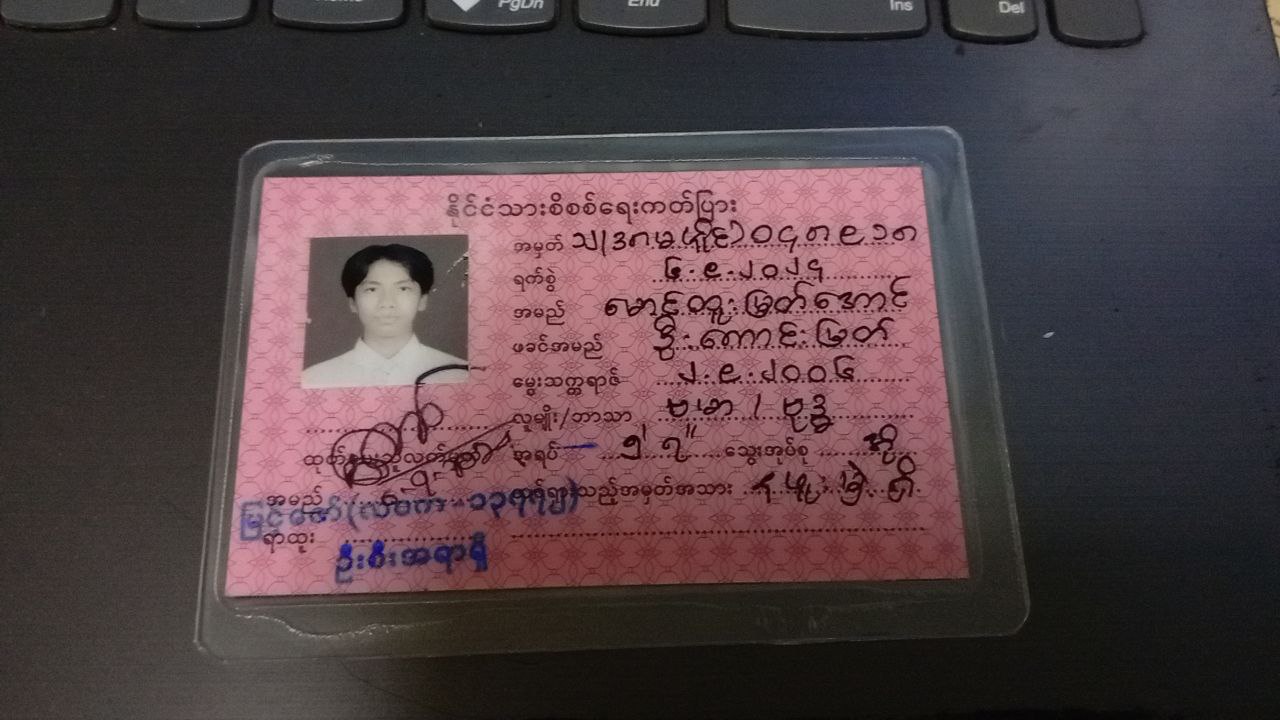 PgDn End Ins Del
နိုင်ငံသားစိစစ်ရေးကတ်ပြား
အမှတ် ၁၂/ဒဂမ(နိုင်)၀၄၈၉၁၈
ရက်စွဲ ၆.၉.၂၀၂၄
အမည် မောင်ထူးမြတ်အောင်
ဖခင်အမည် ဦးကောင်းမြတ်
မွေးသက္ကရာဇ် ၂.၉.၂၀၀၆
လူမျိုး/ဘာသာ ဗမာ / ဗုဒ္ဓ
အရပ် ၅' ၇" သွေးအုပ်စု အို
ထုတ်ပေးသူလက်မှတ်
ထင်ရှားသည့်အမှတ်အသား
အမည်
မြင့်ဇော်(လဝက-၁၃၅၅၂)
ရာထူး
ဦးစီးအရာရှိ